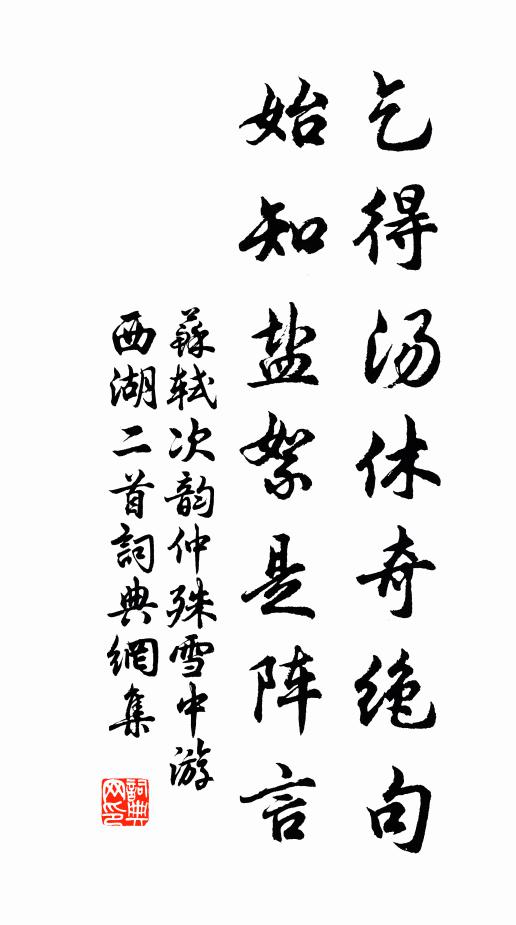 乞得汤休奇绝句
始知盐絮是阵言
蘇軾次韵仲殊雪中游
西湖二首詞典網集
詞典网印